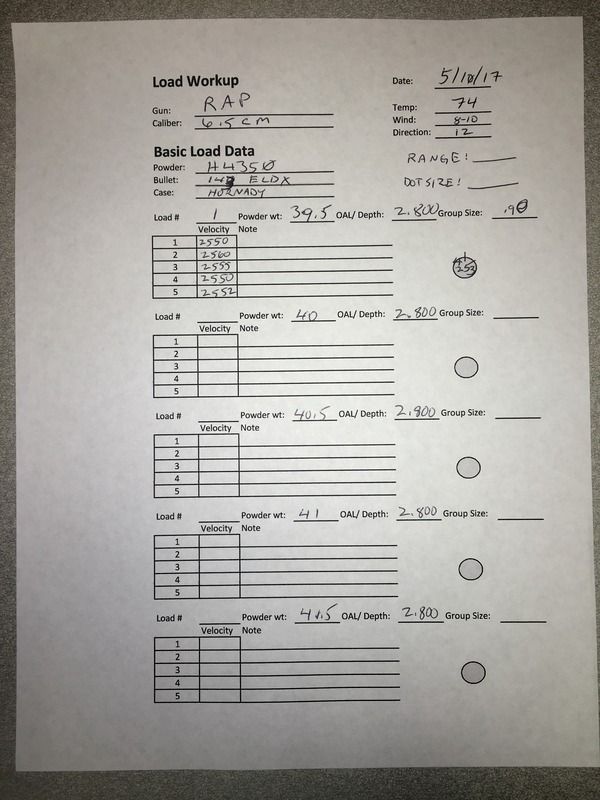 Load Workup
Date: 5/10/17
Gun: RAP
Temp: 74
Caliber: 6.5 CM
Wind: 8-10
Direction: 12
Basic Load Data
RANGE:
Powder: H4350
Bullet: 143 ELDX
DOT SIZE:
Case: HORNADY
Load # 1 Powder wt: 39.5 OAL/ Depth: 2.800 Group Size: .90
Velocity Note
1 2550
2 2560
3 2555
4 2550
5 2552
Load # Powder wt: 40 OAL/ Depth: 2.800 Group Size:
Velocity Note
1
2
3
4
5
Load # Powder wt: 40.5 OAL/ Depth: 2.800 Group Size:
Velocity Note
1
2
3
4
5
Load # Powder wt: 41 OAL/ Depth: 2.800 Group Size:
Velocity Note
1
2
3
4
5
Load # Powder wt: 41.5 OAL/ Depth: 2.800 Group Size:
Velocity Note
1
2
3
4
5